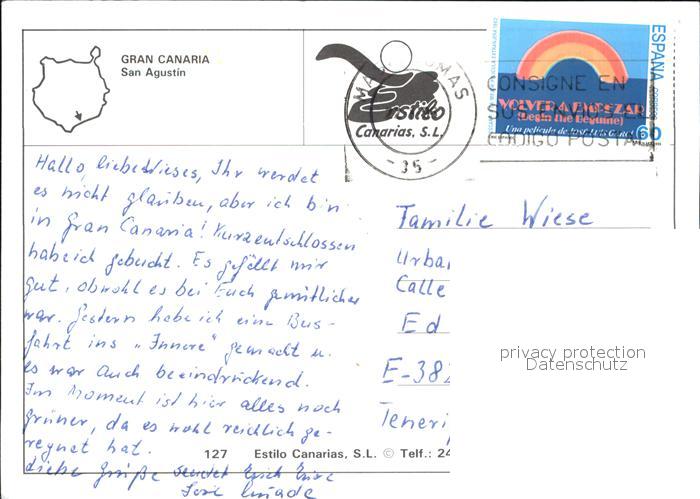 GRAN CANARIA
San Agustín
Estilo
Canarias, S.L.
MAS
- 35 -
CONSIGNE EN
SUS
EL
CODIGO POSTAL
ESPAÑA
CORREOS
VOLVER A EMPEZAR
(Begin the Beguine)
Una película de José Luis Garci
60
Hallo, liebe Wieses, Ihr werdet
es nicht glauben, aber ich bin
in Gran Canaria! Kurzentschlossen
habe ich gebucht. Es gefällt mir
gut, obwohl es bei Euch gemütlicher
war. Gestern habe ich eine Bus-
fahrt ins „Innere" gemacht u.
es war auch beeindruckend.
Im Moment ist hier alles noch
grüner, da es wohl reichlich ge-
regnet hat.
Liebe Grüße sendet Euch Eure
Familie Wiese
Urba
Calle
Ed
E-38
Teneri
privacy protection
Datenschutz
127 Estilo Canarias, S.L. © Telf.: 24